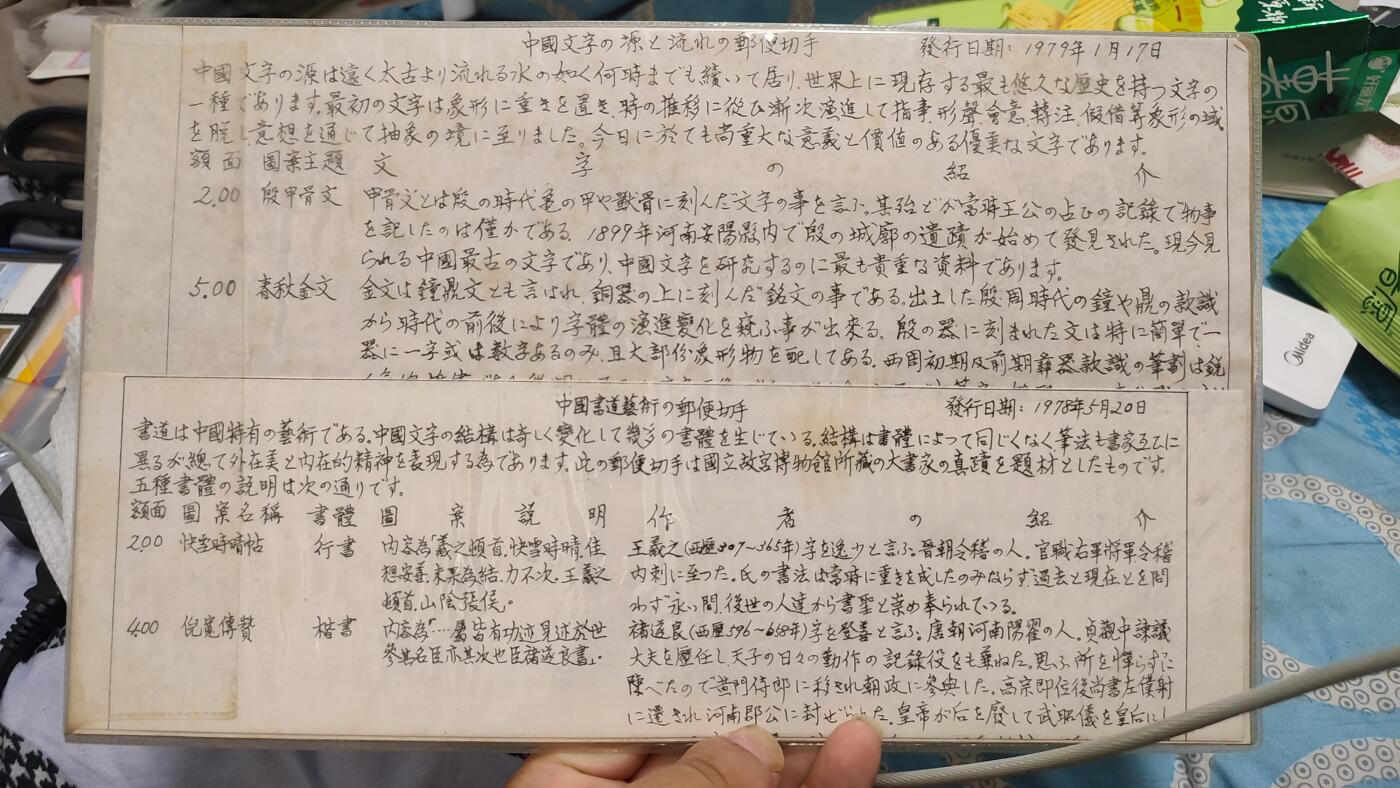 中國文字の源と流れの郵便切手 發行日期: 1979年1月17日
中國文字の源は遠く太古より流れる水の如く何時までも續いて居り、世界上に現存する最も悠久な歷史を持つ文字の
一種であります。最初の文字は象形に重きを置き、時の推移に從ひ漸次演進して指事、形聲、會意、轉注、假借等象形の域
を脱し、意想を通じて抽象の境に至りました。今日に於ても尚重大な意義と價値のある優美な文字であります。
額面 圖案主題 文字の紹介
2.00 殷甲骨文 甲骨文とは殷の時代、亀の甲や獸骨に刻んだ文字の事を言ふ。其殆どが當時王公の占ひの記錄で物事
を記したのは僅かである。1899年河南安陽縣內で殷の城廓の遺蹟が始めて發見された。現今見
られる中國最古の文字であり、中國文字を研究するのに最も貴重な資料であります。
5.00 春秋金文 金文は鐘鼎文とも言はれ、銅器の上に刻んだ銘文の事である。出土した殷、周時代の鐘や鼎の款識
から時代の前後により字體の演進變化を窺ふ事が出來る。殷の器に刻まれた文は特に簡單で一
器に一字或は數字あるのみ、且大部份象形物を配してある。西周初期及前期彝器款識の筆劃は銳
中國書道藝術の郵便切手 發行日期: 1978年5月20日
書道は中國特有の藝術である。中國文字の結構は奇しく變化して幾多の書體を生じている。結構は書體によつて同じくなく筆法も書家互に
異るが總て外在美と内在的精神を表現する為であります。此の郵便切手は國立故宮博物館所藏の大書家の真蹟を題材としたものです。
五種書體の説明は次の通りです。
額面 圖案名稱 書體 圖案説明 作者の紹介
2.00 快雪時晴帖 行書 内容為「羲之頓首。快雪時晴、佳 王羲之(西曆307~365年)字を逸少と言ふ。晉朝令稽の人。官職右軍將軍令稽
想安善。未果為結、力不次。王羲之 内刺に至つた。氏の書法は當時に重きを成したのみならず過去と現在とを問
頓首。山陰張侯。 わず永い間、後世の人達から書聖と崇め奉られている。
4.00 倪寬傳贊 楷書 内容為「…屬皆有功迹見述於世 褚遂良(西曆596~658年)字を登善と言ふ。唐朝河南陽翟の人。貞觀中諫議
參其名臣亦其次也臣褚遂良書」。 大夫を歷任し、天子の日々の動作の記錄役をも兼ねた。思ふ所を憚らずに
陳べたので黄門侍郎に移され朝政に參與した。高宗即位後尚書左僕射
に遷され河南郡公に封ぜられた。皇帝が后を廢して武昭儀を皇后にし
Midea